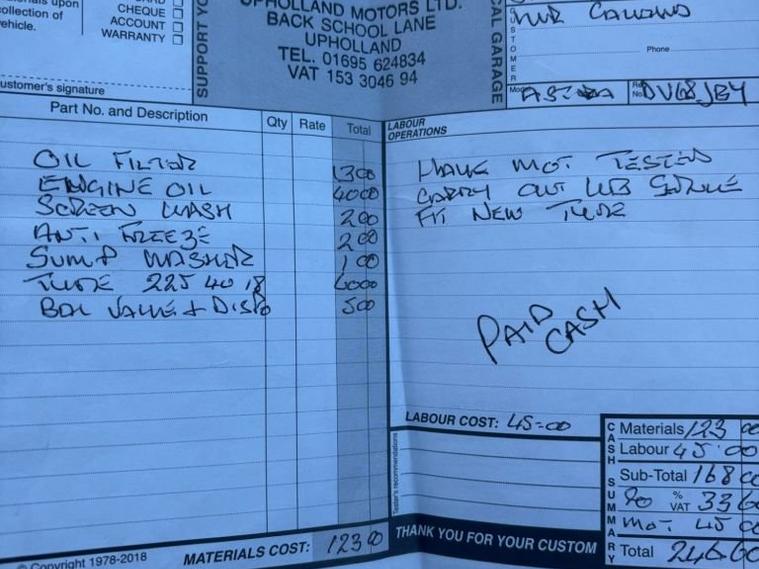 collection of
vehicle.
CHEQUE
ACCOUNT
WARRANTY
SUPPORT
UPHOLLAND MOTORS LTD.
BACK SCHOOL LANE
UPHOLLAND
TEL. 01695 624834
VAT 153 3046 94
CAL GARAGE
CUSTOMER
Phone
Customer's signature
Part No. and Description Qty Rate Total
OIL FILTER 13 00
ENGINE OIL 40 00
SCREEN WASH 2 00
ANTI FREEZE 2 00
SUMP WASHER 1 00
TYRE 225 40 18 60 00
BAL VALVE + DISPO 5 00
MATERIALS COST: 123 00
© Copyright 1978-2018
LABOUR OPERATIONS
HAVE MOT TESTED
CARRY OUT LUB SERVICE
FIT NEW TYRE
PAID
CASH
LABOUR COST: 45-00
Tester's recommendations
THANK YOU FOR YOUR CUSTOM
CASH SUMMARY
Materials 123 00
Labour 45 00
Sub-Total 168 00
20 % VAT 33 60
MOT 45 00
Total 246 60